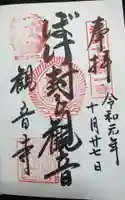 奉拝
令和元年
十月廿七日
ぼけ封じ観音
観音寺